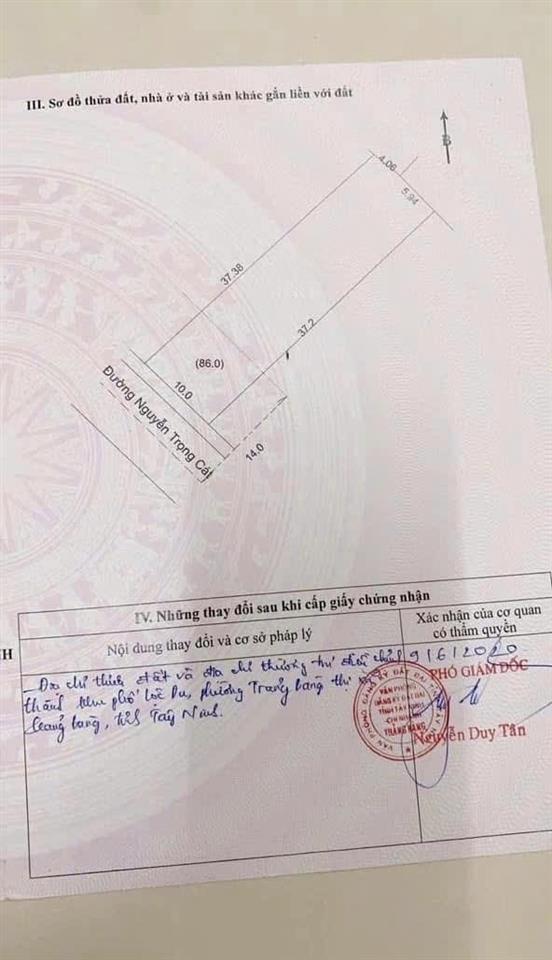 III. Sơ đồ thửa đất, nhà ở và tài sản khác gắn liền với đất
B
4.06
5.94
37.38
37.2
(86.0)
10.0
Đường Nguyễn Trọng Cát
14.0
IV. Những thay đổi sau khi cấp giấy chứng nhận
NH
Nội dung thay đổi và cơ sở pháp lý
Xác nhận của cơ quan
có thẩm quyền
- Địa chỉ thửa đất và địa chỉ thường trú
9/6/2020
thành khu phố Lộc Du, phường Trảng Bàng, thị
PHÓ GIÁM ĐỐC
Trảng Bàng, tỉnh Tây Ninh.
VĂN PHÒNG
ĐĂNG KÝ ĐẤT ĐAI
TỈNH TÂY NINH
CHI NHÁNH
TRẢNG BÀNG
Nguyễn Duy Tân